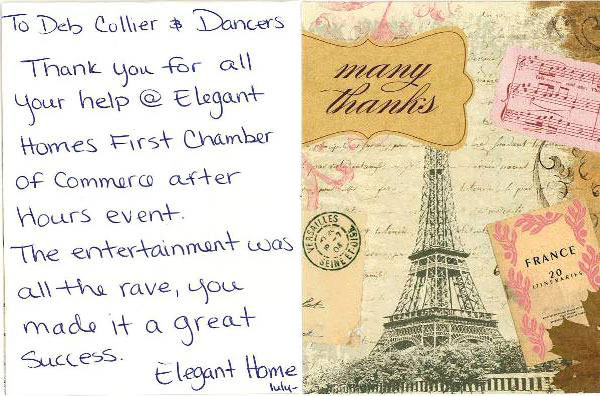 To Deb Collier & Dancers
Thank you for all
your help @ Elegant
Homes First Chamber
of Commerce after
Hours event.
The entertainment was
all the rave, you
made it a great
success.
Elegant Home
many
thanks
VERSAILLES
SEINE-ET-OISE
FRANCE
20
ITINERARIES